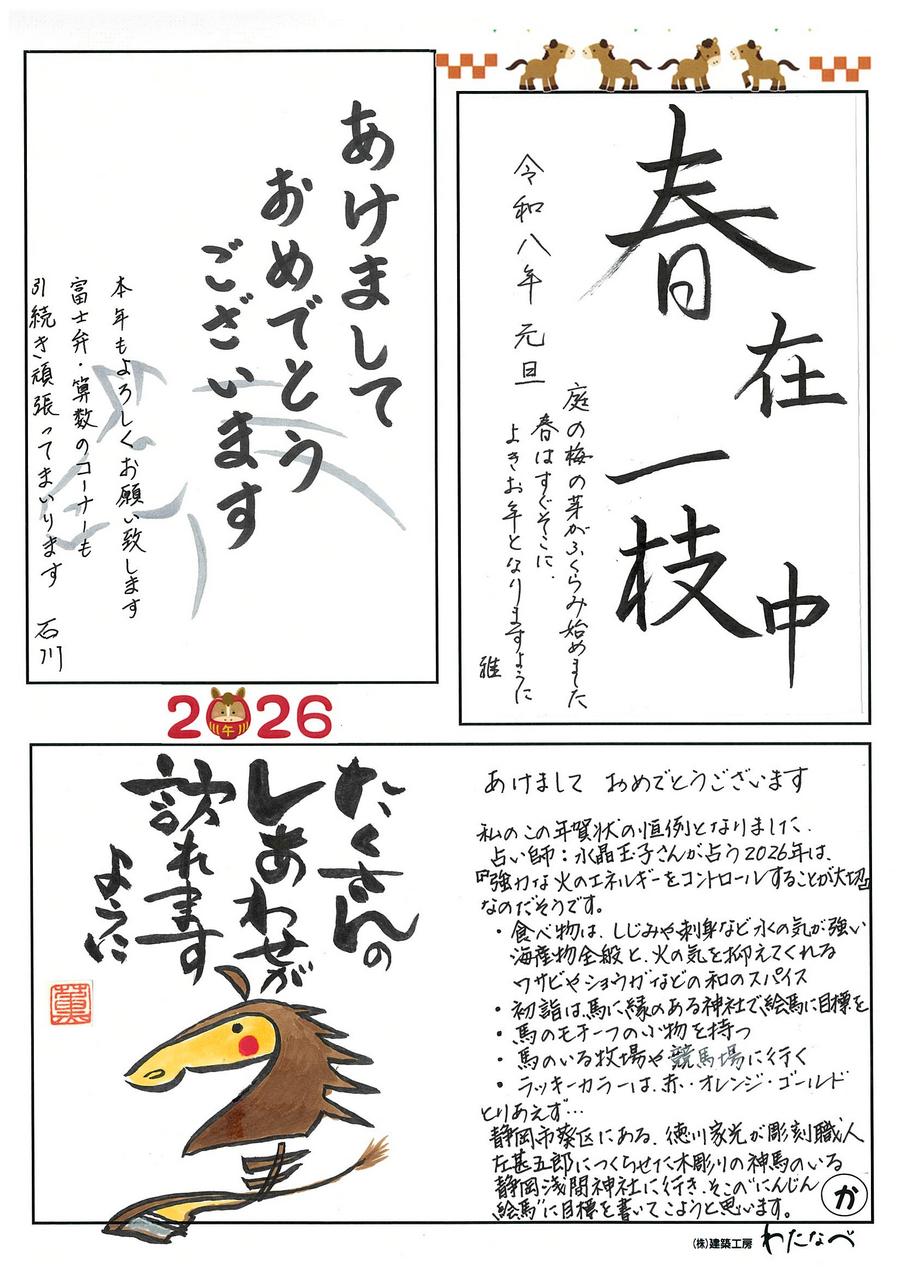 あけまして
おめでとう
ございます
本年もよろしくお願い致します
富士弁・算数のコーナーも
引続き頑張ってまいります 石川
春在一枝中
令和八年 元旦
庭の梅の芽がふくらみ始めました
春はすぐそこに、
よきお年となりますように
雅
2026
午
たくさんの
しあわせが
訪れます
ように
薫
あけまして おめでとうございます
私のこの年賀状の恒例となりました、
占い師:水晶玉子さんが占う2026年は、
『強力な火のエネルギーをコントロールすることが大切』
なのだそうです。
・食べ物は、しじみや刺身など水の気が強い
海産物全般と、火の気を抑えてくれる
ワサビやショウガなどの和のスパイス
・初詣は、馬に縁のある神社で絵馬に目標を
・馬のモチーフの小物を持つ
・馬のいる牧場や競馬場に行く
・ラッキーカラーは、赤・オレンジ・ゴールド
とりあえず…
静岡市葵区にある、徳川家光が彫刻職人
左甚五郎につくらせた木彫りの神馬のいる
静岡浅間神社に行き、そこの"にんじん
絵馬"に目標を書いてこようと思います。
か
(株)建築工房 わたなべ